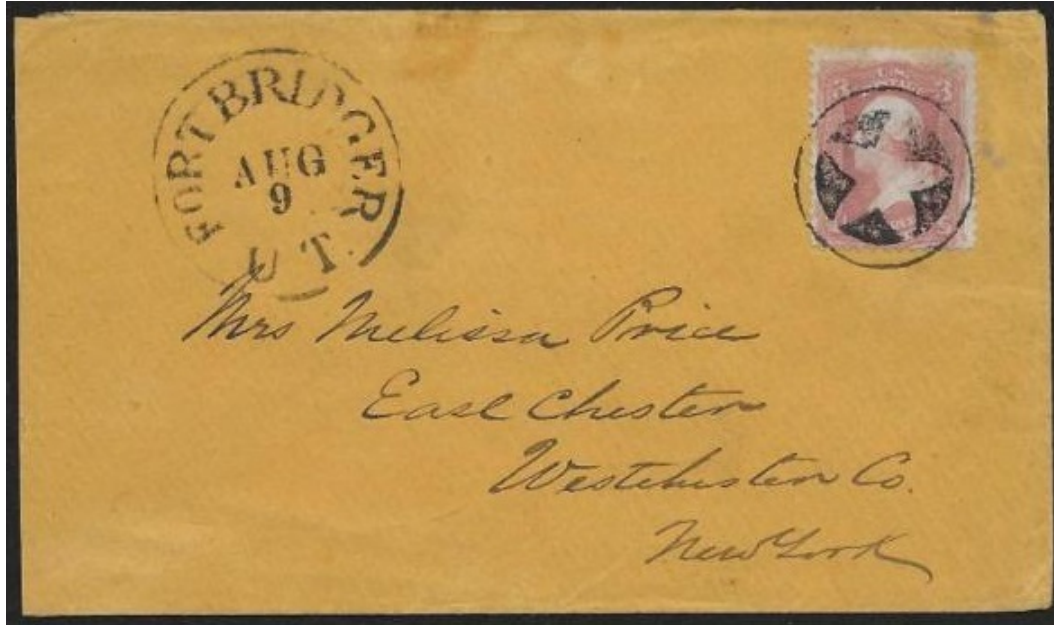 FORT BRIDGER
AUG
9
U.T.
3 3
Mrs Melissa Price
East Chester
Westchester Co.
New York